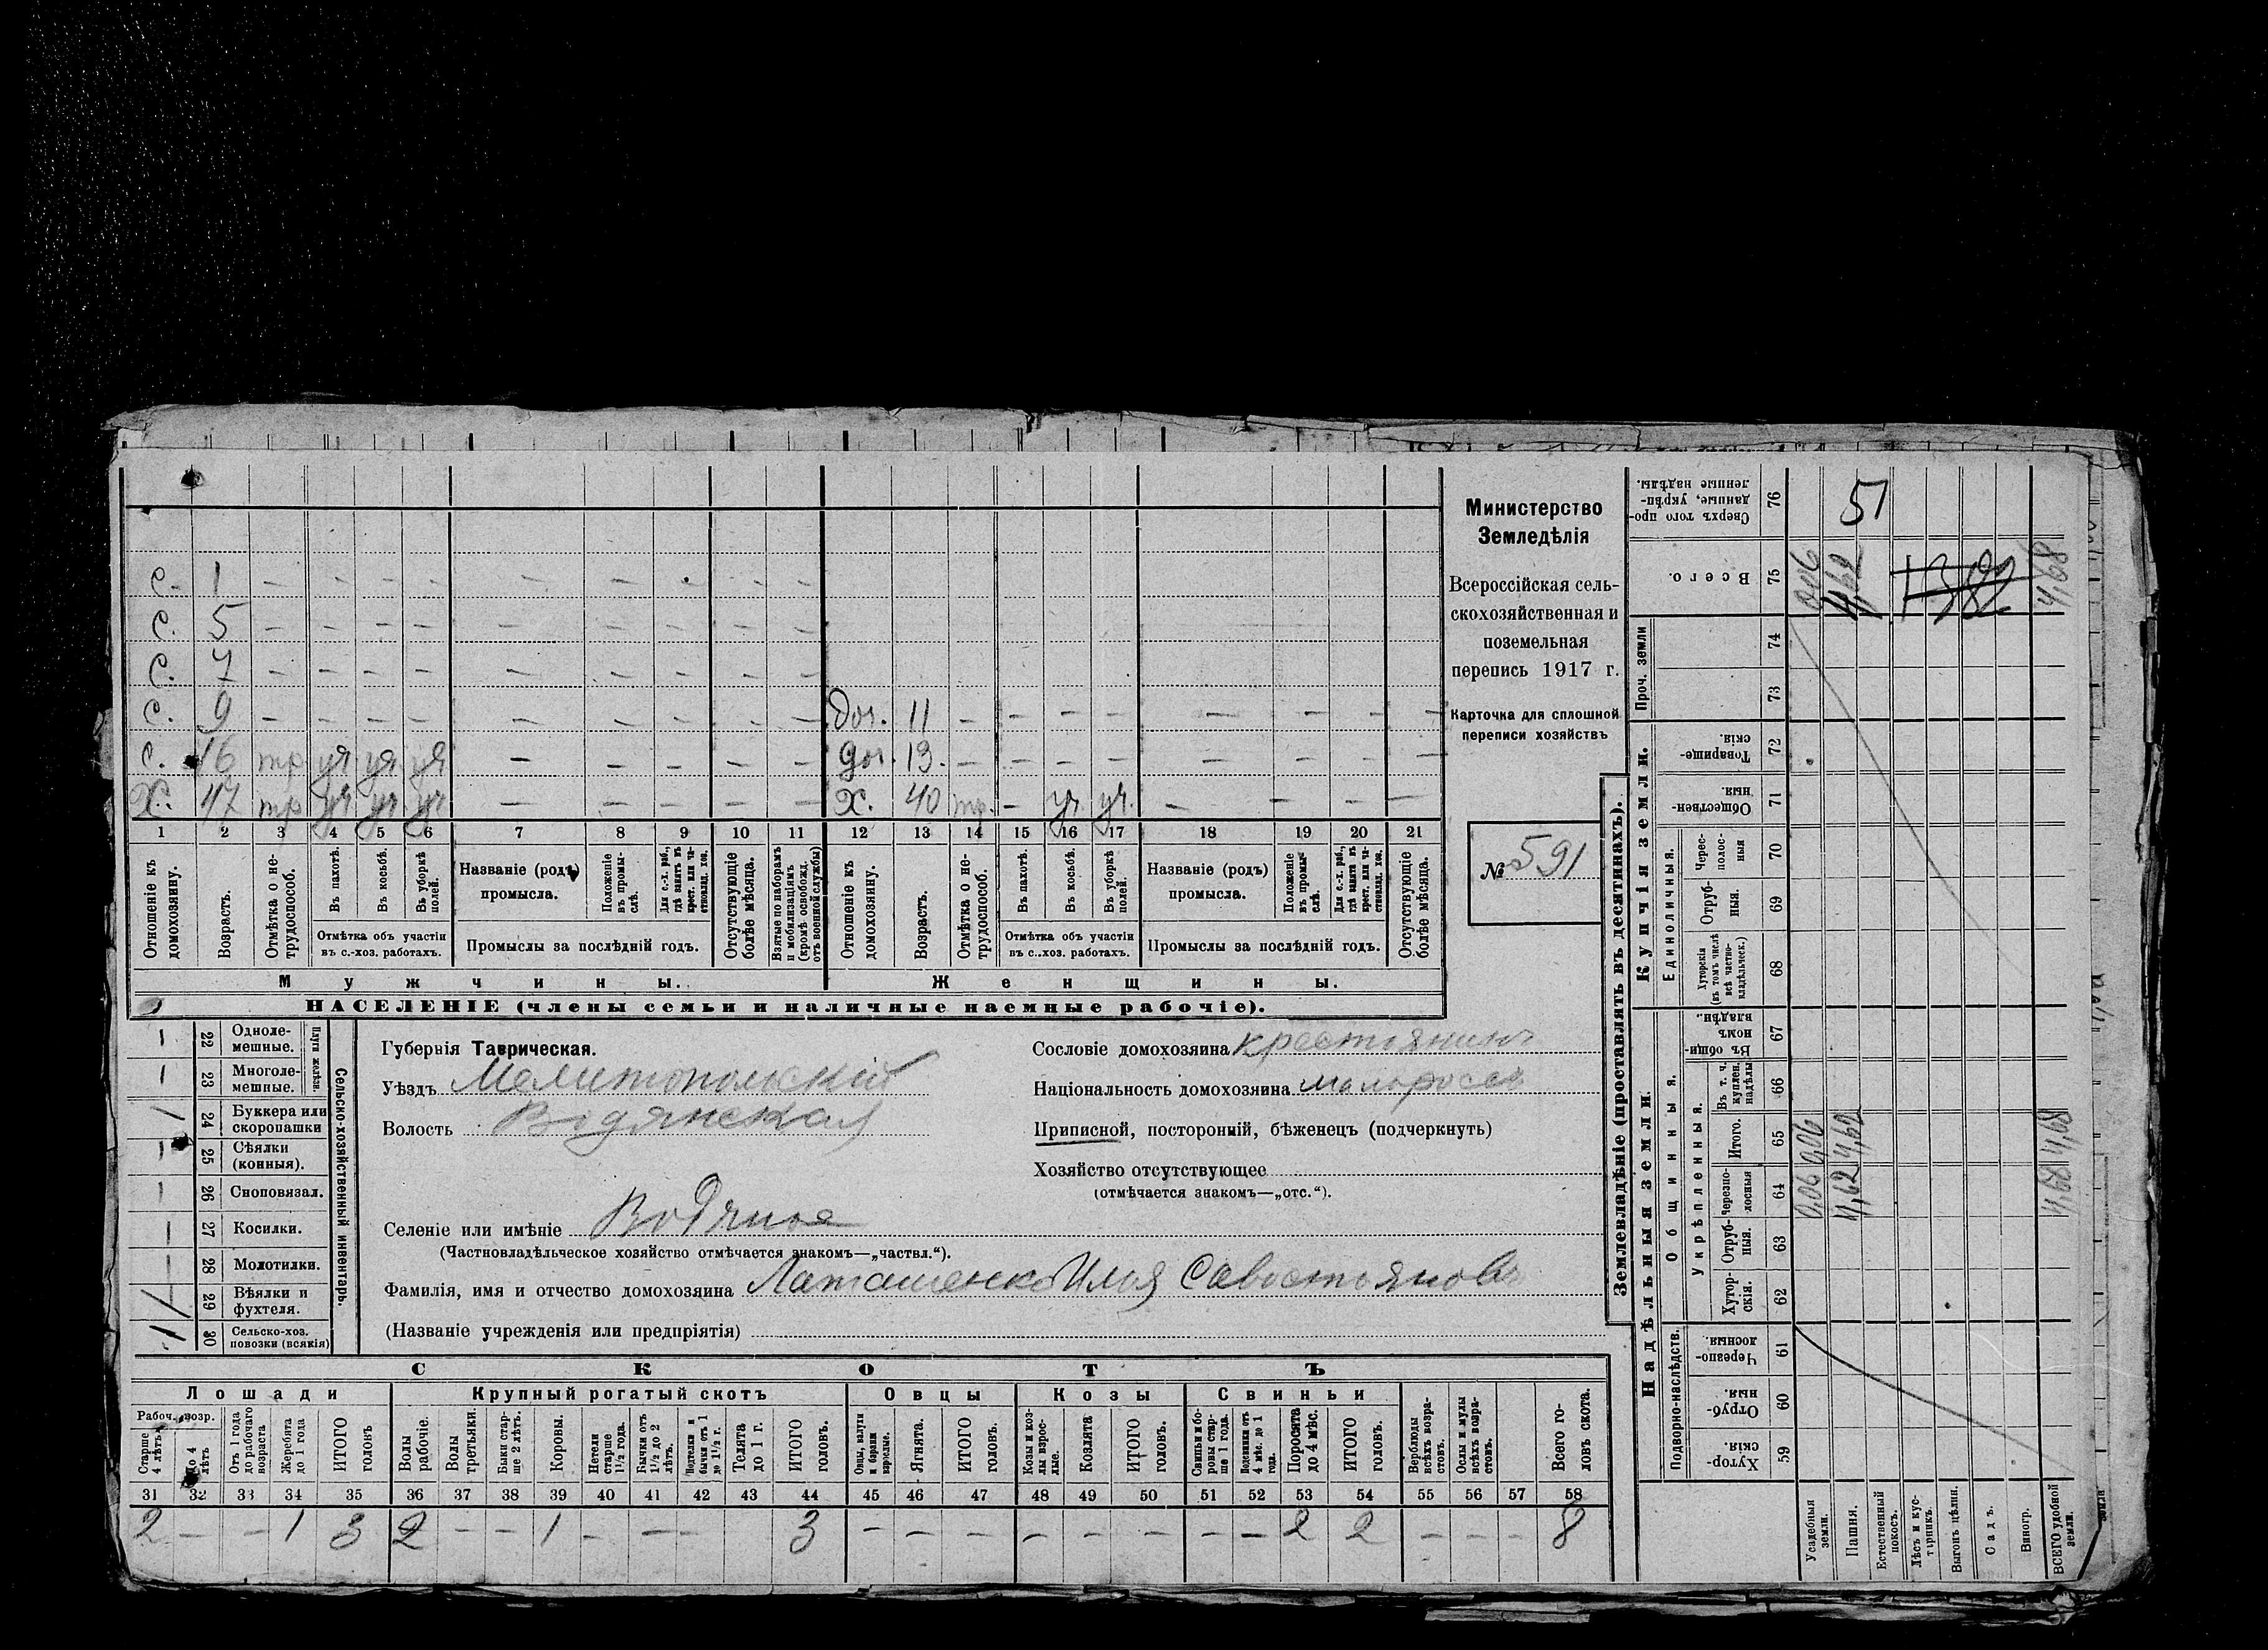 Министерство
Земледѣлія
Всероссійская сель-
скохозяйственная и
поземельная
перепись 1917 г.
Карточка для сплошной
переписи хозяйствъ
№ 591
с. 1 — — — — — — — — —
с. 5 — — — — — — — — —
с. 7 — — — — — — — — —
с. 9 — — — — — — — — — доч. 11 — — — — — — — —
с. 16 тр уч уч уч — — — — — доч. 13. — — — — — — — —
Х. 47 тр уч уч уч — — — — — Х. 40 тр. — уч уч. — — — —
1 2 3 4 5 6 7 8 9 10 11 12 13 14 15 16 17 18 19 20 21
Отношеніе къ домохозяину.
Возрастъ.
Отмѣтка о не-трудоспособ.
Въ пахотѣ.
Въ косьбѣ.
Въ уборкѣ полей.
Отмѣтка объ участіи
въ с.-хоз. работахъ.
Названіе (родъ)
промысла.
Положеніе въ промы-слѣ.
Для с.-х. раб., гдѣ занятъ въ крест. или ча-стновлад. хоз.
Промыслы за послѣдній годъ.
Отсутствующіе болѣе мѣсяца.
Взятые по наборамъ и мобилизаціямъ (кромѣ освобожд. отъ военной службы)
Отношеніе къ домохозяину.
Возрастъ.
Отмѣтка о не-трудоспособ.
Въ пахотѣ.
Въ косьбѣ.
Въ уборкѣ полей.
Отмѣтка объ участіи
въ с..хоз. работахъ.
Названіе (родъ)
промысла.
Положеніе въ промы-слѣ.
Для с.-х. раб., гдѣ занята въ крест. или ча-стновлад. хоз.
Промыслы за послѣдній годъ.
Отсутствующіе болѣе мѣсяца.
Мужчины. Женщины.
НАСЕЛЕНІЕ (члены семьи и наличные наемные рабочіе).
Сельско-хозяйственный инвентарь.
Плуги желѣзн.
— 22 Одноле-мешные.
— 23 Многоле-мешные.
24 Буккера или скоропашки
— 25 Сѣялки (конныя).
— 26 Сноповязал.
— 27 Косилки.
— 28 Молотилки.
29 Вѣялки и фухтеля.
30 Сельско-хоз. повозки (всякія)
Губернія Таврическая.
Уѣздъ Мелитопольскій
Волость Водянская
Селеніе или имѣніе Водяное
(Частновладѣльческое хозяйство отмѣчается знакомъ—„частвл.“).
Фамилія, имя и отчество домохозяина Латашенко Илья Савостьяновъ
(Названіе учрежденія или предпріятія)
Сословіе домохозяина крестьянинъ
Національность домохозяина малороссъ
Приписной, посторонній, бѣженецъ (подчеркнуть)
Хозяйство отсутствующее
(отмѣчается знакомъ—„отс.“).
СКОТЪ
Лошади Крупный рогатый скотъ Овцы Козы Свиньи
Рабоч. возр.
Старше 4 лѣтъ
до 4 лѣтъ
Отъ 1 года до рабочаго возраста
Жеребята до 1 года
ИТОГО головъ
Волы рабочіе.
Волы третьяки.
Быки стар-ше 2 лѣтъ.
Коровы.
Нетели старше 1½ года.
Бычки отъ 1½ до 2 лѣтъ.
Подтелки и бычки отъ 1 до 1½ г.
Телята до 1 г.
ИТОГО головъ.
Овцы, валухи и бараны взрослые.
Ягнята.
ИТОГО головъ.
Козы и коз-лы взрос-лые.
Козлята
ИТОГО головъ.
Свиньи и бо-ровы стар-ше 1 года.
Подсвинки отъ 4 мѣс. до 1 года.
Поросята до 4 мѣс.
ИТОГО головъ.
Верблюды всѣхъ возра-стовъ.
Ослы и мулы всѣхъ возра-стовъ.
Всего го-ловъ скота.
31 32 33 34 35 36 37 38 39 40 41 42 43 44 45 46 47 48 49 50 51 52 53 54 55 56 57 58
2 — — 1 3 2 — — 1 — — — 3 — — — — — — — — 2 2 — — — 8
Землевладѣніе (проставлять въ десятинахъ).
Надѣльныя земли.
Купчія земли.
Проч. земли
Подворно-наслѣдств.
Общинныя.
Укрѣпленныя.
Единоличныя.
Сверхъ того про-данные, укрѣп-ленные надѣлы. 76 51
Всего. 75 0,06 4,62 4,68
74
73
Товарище-скія. 72
Обществен-ныя. 71
Черес-полос-ныя 70
Отруб-ныя. 69
Хуторскія (въ томъ числѣ всѣ частно-владѣльческ.) 68
Въ общин-номъ владѣн. 67
Въ т. ч. куплен. надѣлы 66
Итого. 65 0,06 4,62 4,68
Черезпо-лосныя 64 0,06 4,62 4,68
Отруб-ныя. 63
Хутор-скія. 62
Черезпо-лосныя. 61
Отруб-ныя. 60
Хутор-скія. 59
Усадебныя земли.
Пашня.
Естественный покосъ.
Лѣсъ и кус-тарникъ.
Выгонъ цѣлин.
Садъ.
Виногр.
ВСЕГО удобной земли.